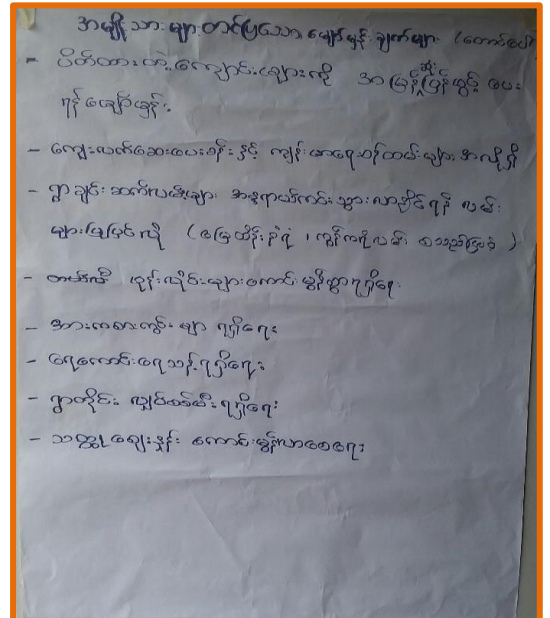 အမျိုးသားများတင်ပြသော မျှော်မှန်းချက်များ (တောင်ပေါ်
- ပိတ်ထားတဲ့ကျောင်းများကို အမြန်ဆုံးပြန်ဖွင့်ပေး
ရန် မျှော်မှန်း
- ကျေးလက်ဆေးပေးခန်းနှင့် ကျန်းမာရေးဝန်ထမ်းများအလိုရှိ
- ရွာချင်းဆက်လမ်းများ အန္တရာယ်ကင်းသွားလာနိုင်ရန် လမ်း
များပြုပြင်လို ( မြေထိန်းနံရံ ၊ ကွန်ကရိလမ်း စသည်ဖြင့် )
- တယ်လီ ဖုန်းလိုင်းများကောင်းမွန်စွာရရှိရေး
- အားကစားကွင်းများ ရရှိရေး
- ရေကောင်းရေသန့်ရရှိရေး
- ရွာတိုင်း လျှပ်စစ်မီးရရှိရေး
- သတ္တုဈေးနှုန်း ကောင်းမွန်လာစေရေး